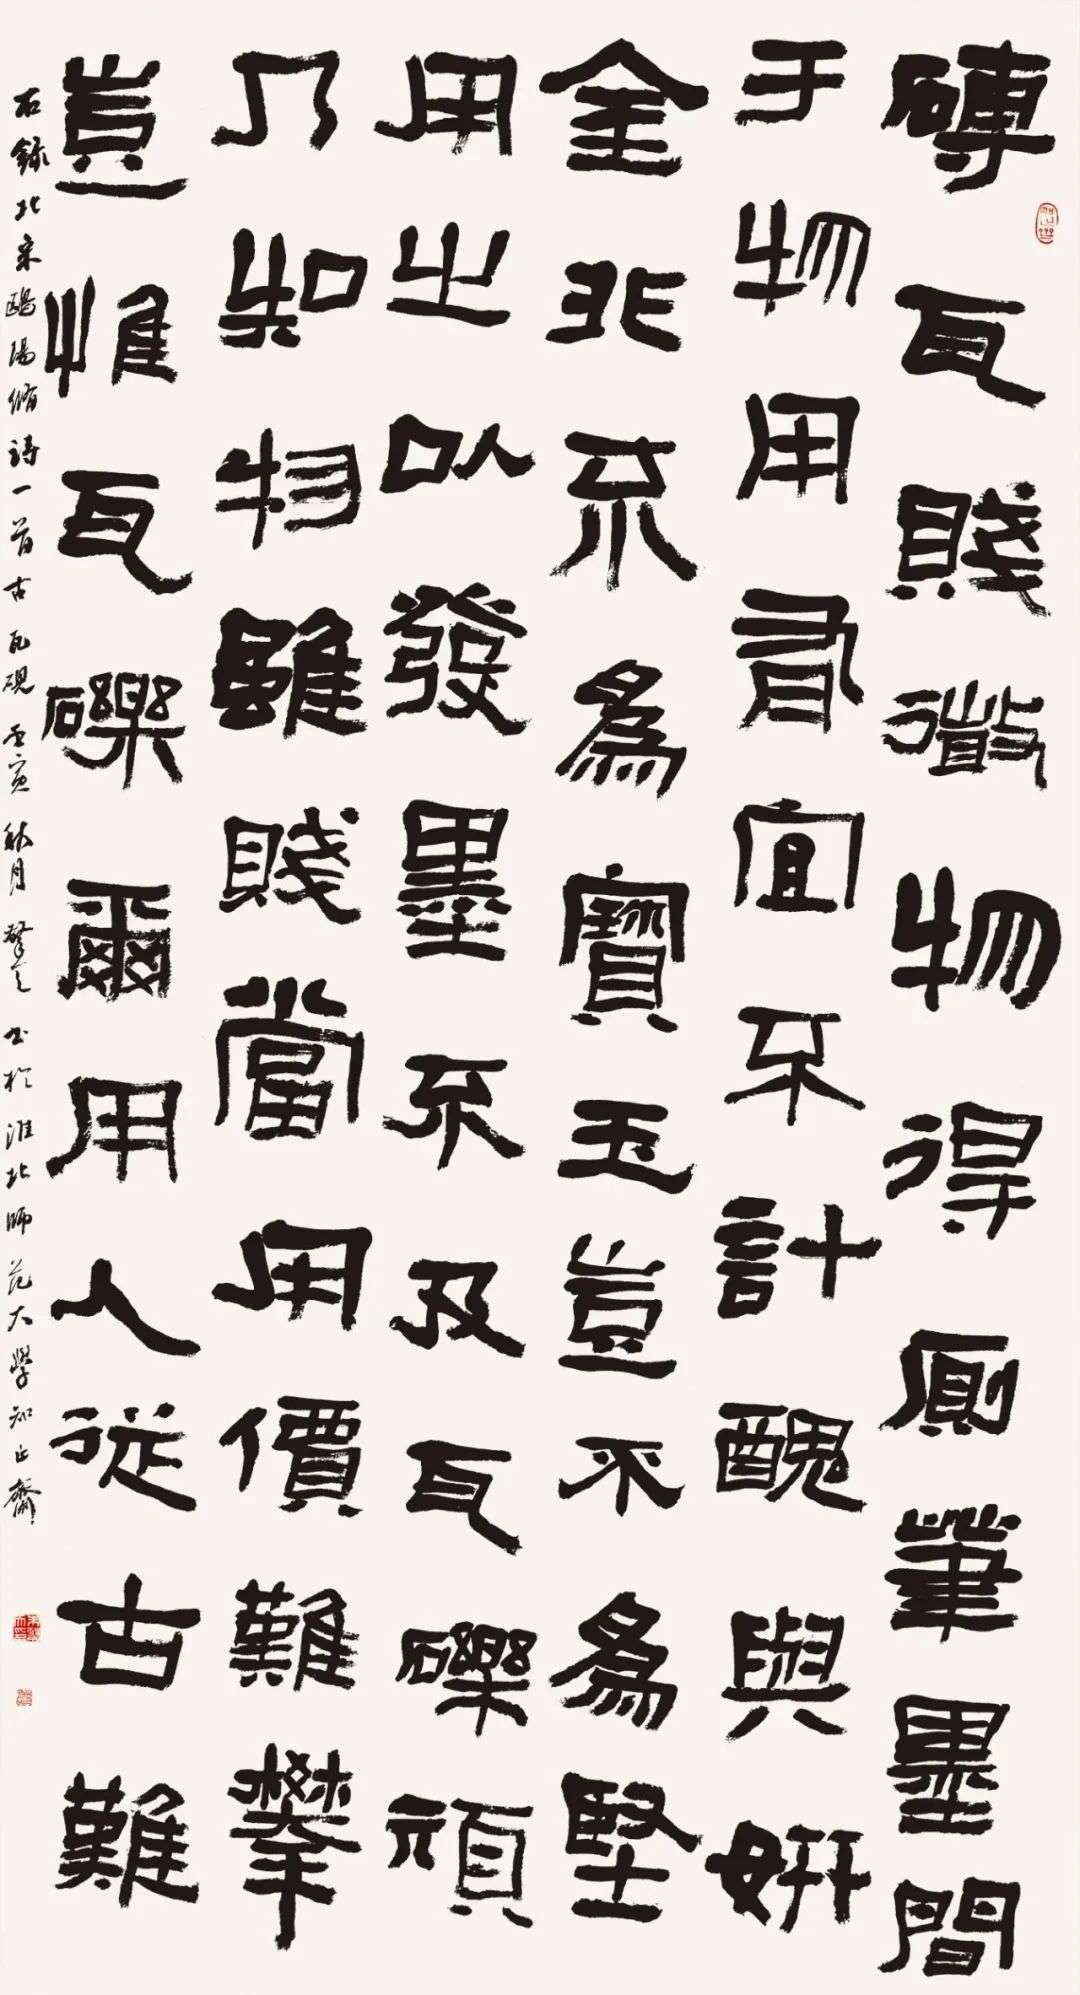 磚瓦賤微物得厠筆墨間
于物用有宜不計醜與妍
金非不爲寶玉豈不爲堅
用之以發墨不及瓦礫頑
乃知物雖賤當用價難攀
豈惟瓦礫爾用人從古難
右錄北宋歐陽脩詩一首古瓦硯壬寅秋月书於淮北師范大學知止齋